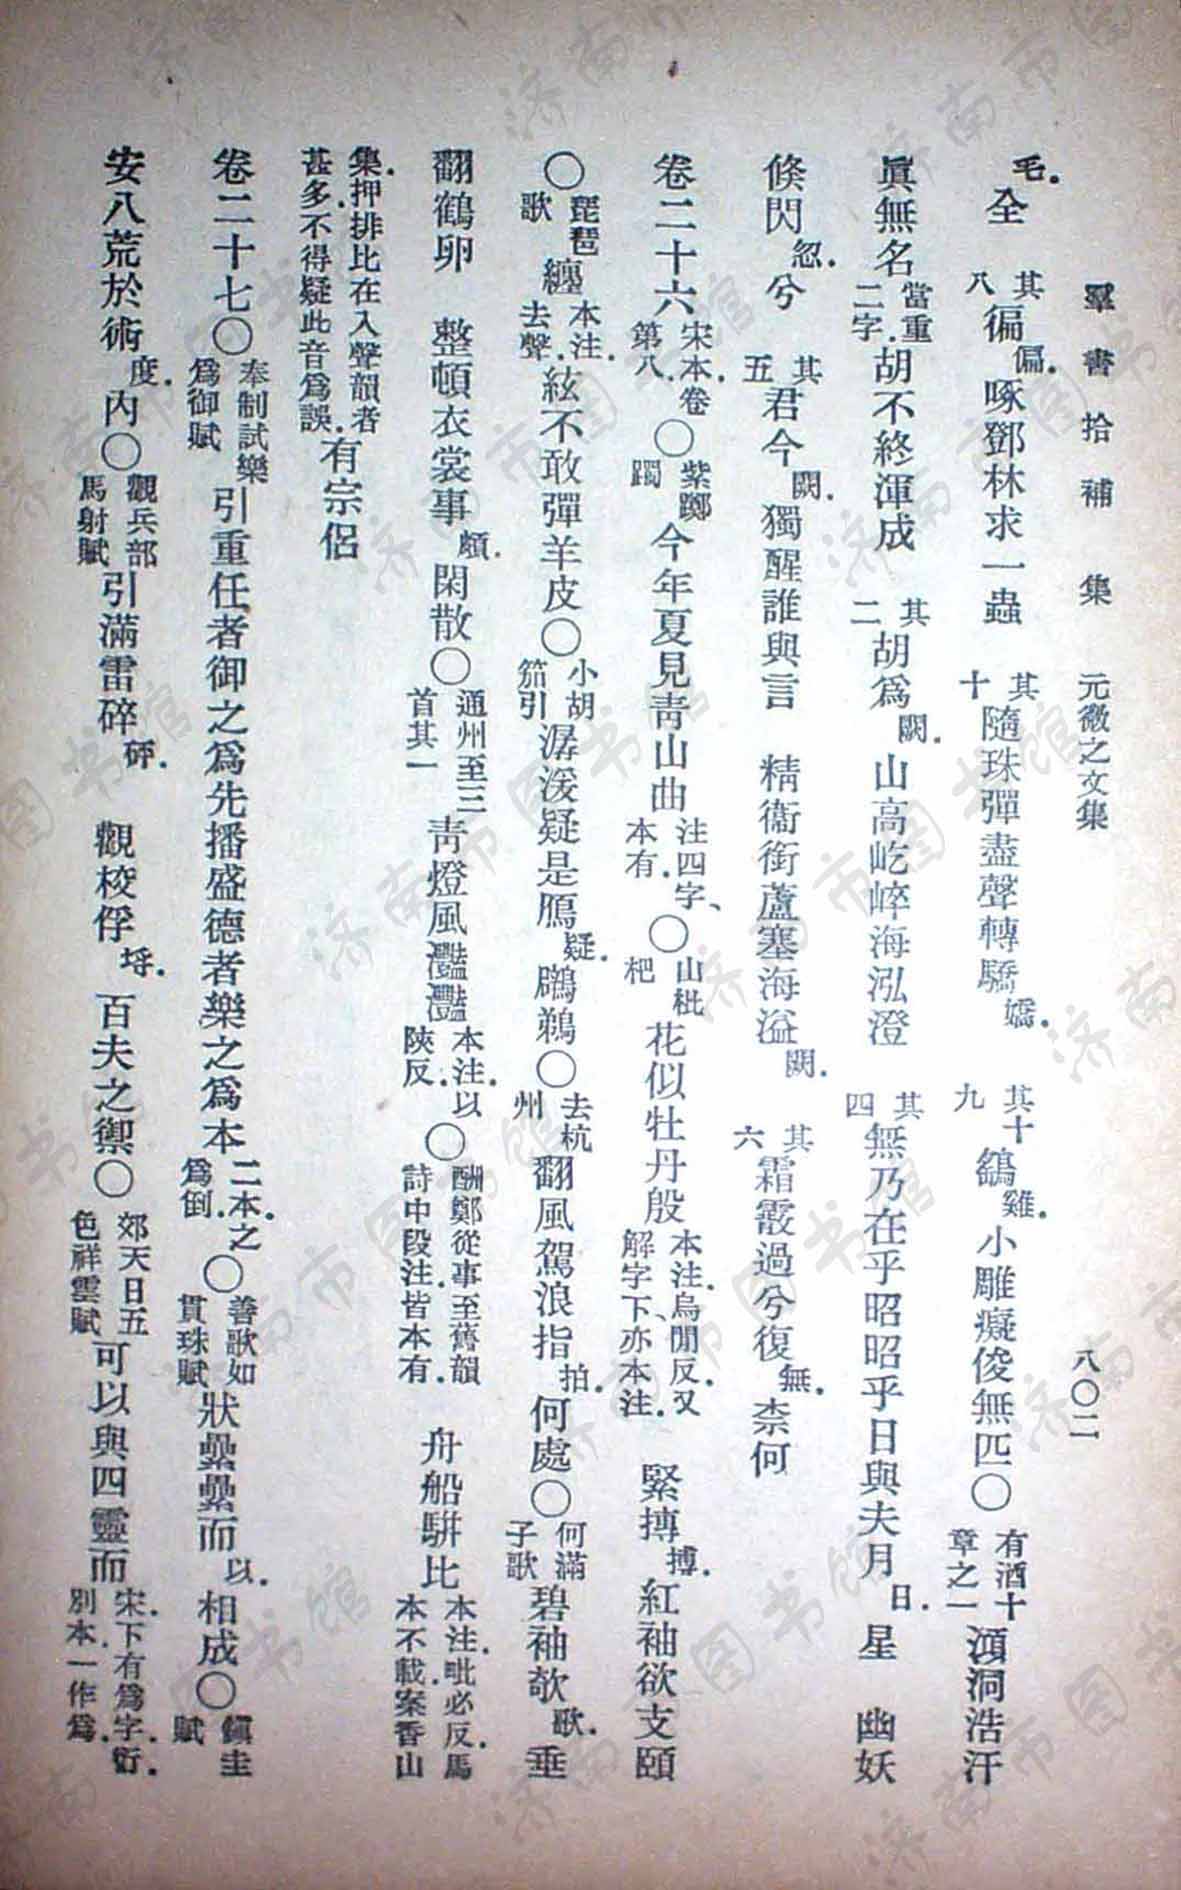 羣書拾補 集 元微之文集 八〇二
毛。全 其八 徧偏。啄鄧林求一蟲 其十 隨珠彈盡聲轉驕嬌。 其十九 鷂雞。小雕癡俊無匹〇有酒十章之一 澒洞浩汗
眞無名當重二字。胡不終渾成 其二 胡爲闕。山高屹崪海泓澄 其四 無乃在乎昭昭乎日與夫月日。星 幽妖
倏閃忽。兮 其五 君今闕。獨醒誰與言 精衞銜蘆塞海溢闕。 其六 霜霰過兮復無。柰何
卷二十六宋本卷第八。〇紫躑躅 今年夏見靑山曲注四字、本有。〇山枇杷 花似牡丹殷本注。烏閒反。又解字下、亦本注。 緊搏摶。紅袖欲支頤
〇琵琶歌 纏本注。去聲。絃不敢彈羊皮〇小胡笳引 潺湲疑是鴈疑。鸊鵜〇去杭州 翻風駕浪指拍。何處〇何滿子歌 碧袖欹歌。垂
翻鶴卵 整頓衣裳事頗。閑散〇通州至三首其一 靑燈風灩灩本注。以陝反。〇酬鄭從事至舊韻詩中段注。皆本有。 舟船騈比本注。毗必反。馬本不載。案香山
集。押排比在入聲韻者甚多。不得疑此音爲誤。有宗侶
卷二十七〇奉制試樂爲御賦 引重任者御之爲先播盛德者樂之爲本二本。之爲倒。〇善歌如貫珠賦 狀纍纍而以。相成〇鎭圭賦
安八荒於術度。內〇觀兵部馬射賦 引滿雷碎砰。 觀棱俘埒。百夫之禦〇郊天日五色祥雲賦 可以與四靈而宋。下有爲字。衍。別本一作爲。